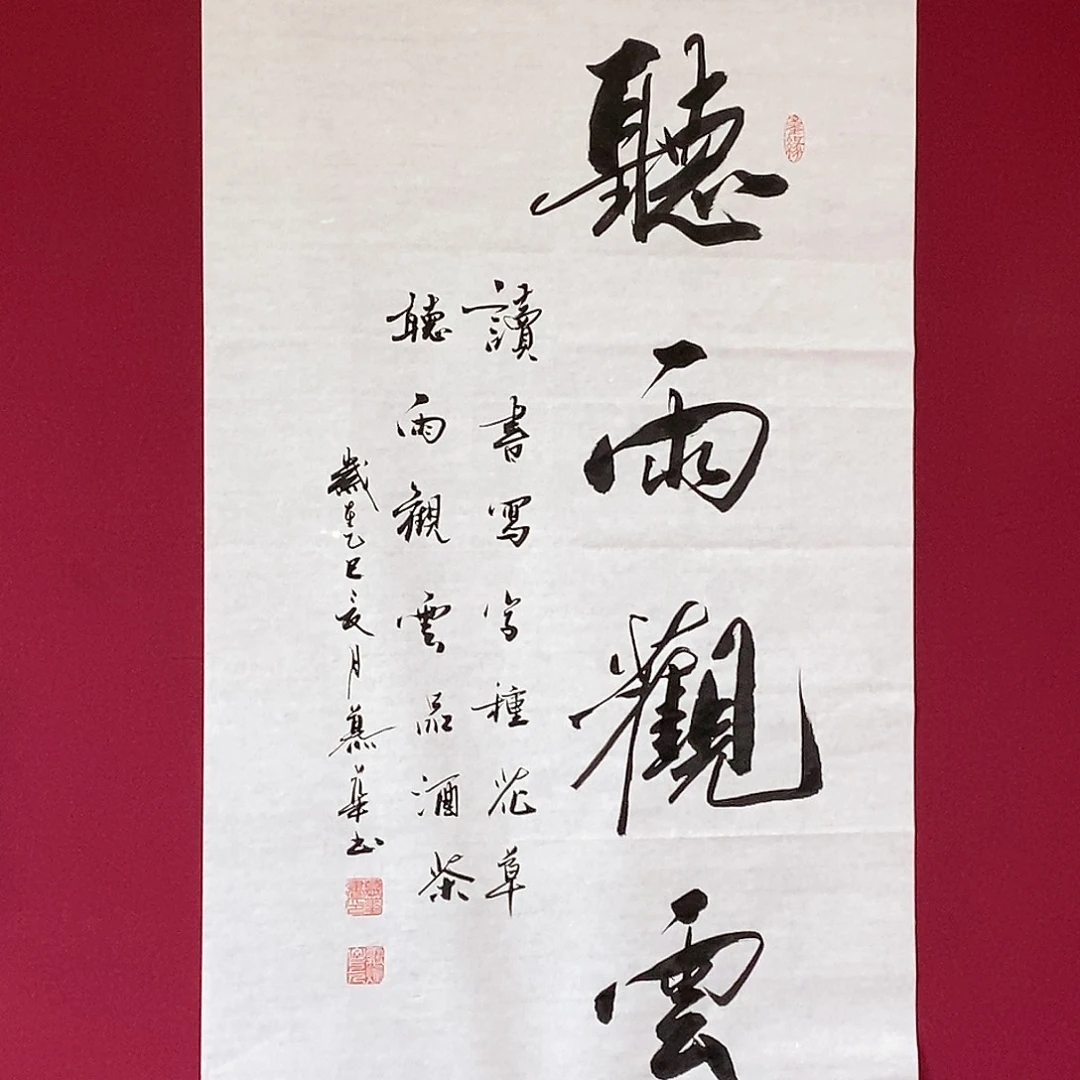 聽雨觀雲
讀書寫字種花草
聽雨觀雲品酒茶
歲在乙巳辰月慕華書